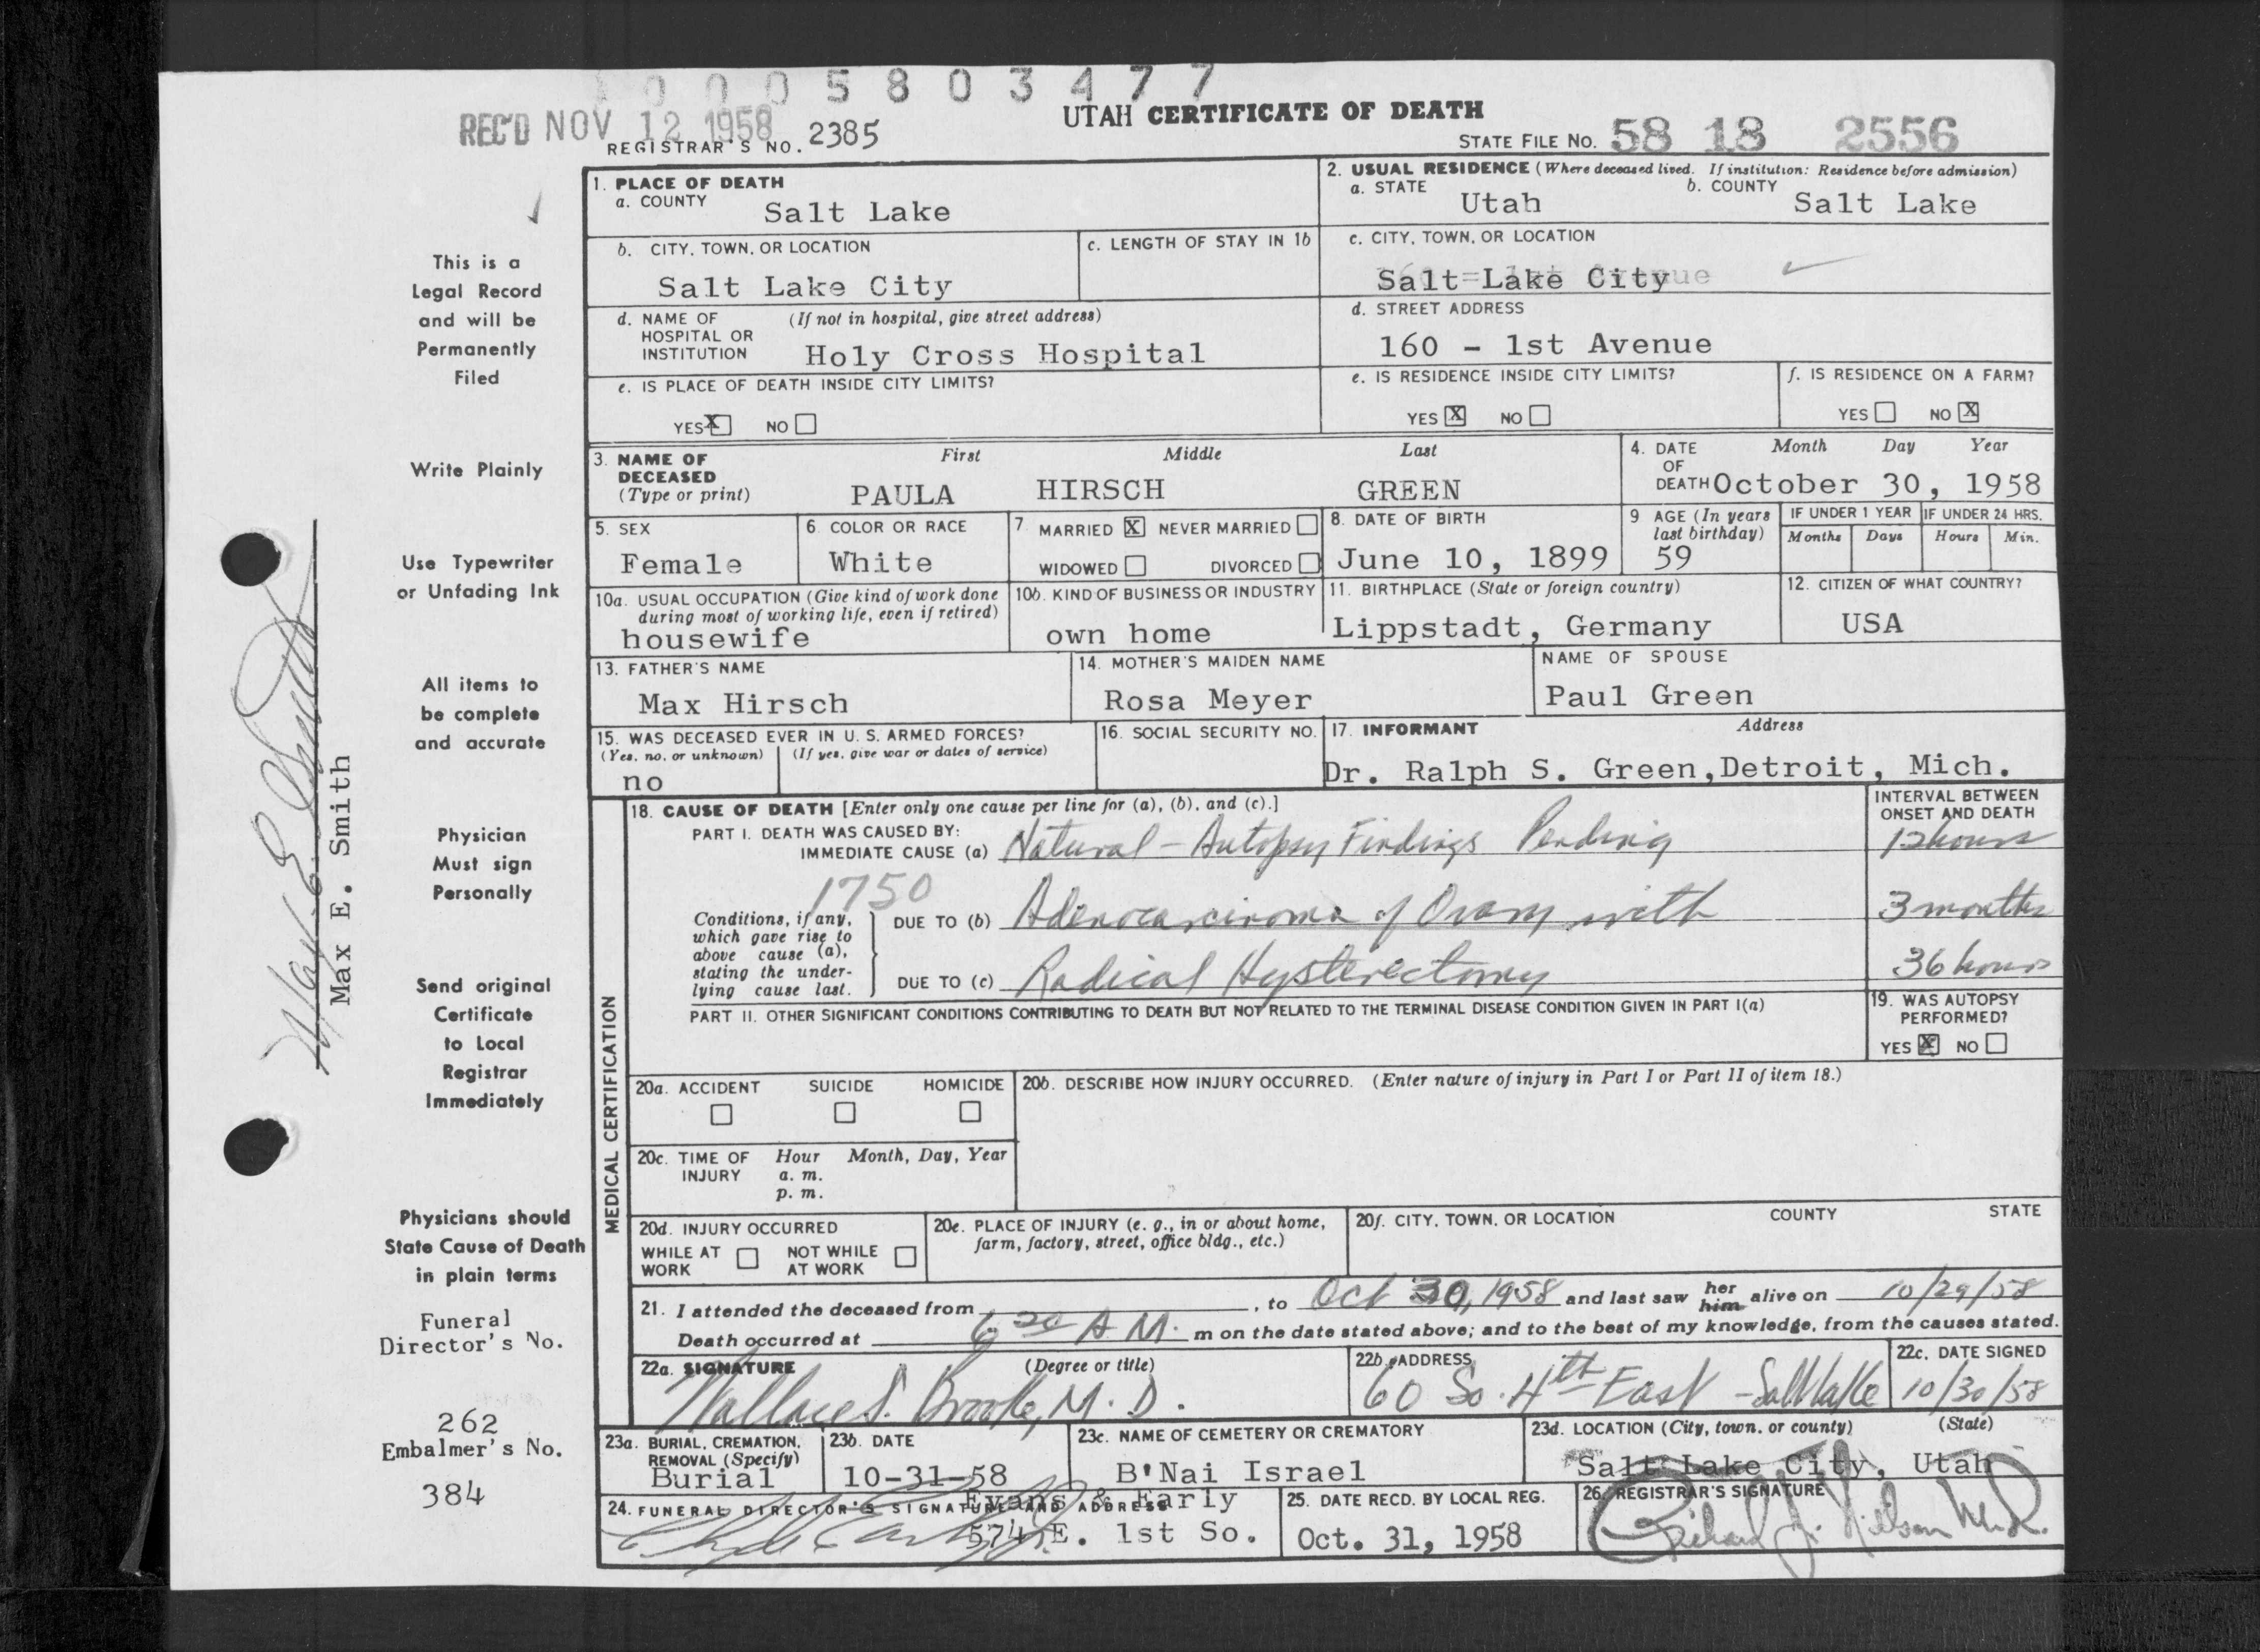 0005803477
REC'D NOV 12 1958
REGISTRAR'S NO. 2385
UTAH CERTIFICATE OF DEATH
STATE FILE NO. 58 18 2556
This is a
Legal Record
and will be
Permanently
Filed
Write Plainly
Use Typewriter
or Unfading Ink
All items to
be complete
and accurate
Physician
Must sign
Personally
Send original
Certificate
to Local
Registrar
Immediately
Physicians should
State Cause of Death
in plain terms
Funeral
Director's No.
262
Embalmer's No.
384
Max E. Smith
Max E. Smith
1. PLACE OF DEATH
a. COUNTY Salt Lake
2. USUAL RESIDENCE (Where deceased lived. If institution: Residence before admission)
a. STATE Utah b. COUNTY Salt Lake
b. CITY, TOWN, OR LOCATION Salt Lake City
c. LENGTH OF STAY IN 1b
c. CITY, TOWN, OR LOCATION Salt Lake City
d. NAME OF HOSPITAL OR INSTITUTION (If not in hospital, give street address) Holy Cross Hospital
d. STREET ADDRESS 160 - 1st Avenue
e. IS PLACE OF DEATH INSIDE CITY LIMITS?
YES X NO
e. IS RESIDENCE INSIDE CITY LIMITS?
YES X NO
f. IS RESIDENCE ON A FARM?
YES NO X
3. NAME OF DECEASED (Type or print)
First Middle Last
PAULA HIRSCH GREEN
4. DATE OF DEATH Month Day Year
October 30, 1958
5. SEX Female
6. COLOR OR RACE White
7. MARRIED X NEVER MARRIED
WIDOWED DIVORCED
8. DATE OF BIRTH June 10, 1899
9 AGE (In years last birthday) 59
IF UNDER 1 YEAR Months Days
IF UNDER 24 HRS. Hours Min.
10a. USUAL OCCUPATION (Give kind of work done during most of working life, even if retired)
housewife
10b. KIND OF BUSINESS OR INDUSTRY
own home
11. BIRTHPLACE (State or foreign country)
Lippstadt, Germany
12. CITIZEN OF WHAT COUNTRY?
USA
13. FATHER'S NAME
Max Hirsch
14. MOTHER'S MAIDEN NAME
Rosa Meyer
NAME OF SPOUSE
Paul Green
15. WAS DECEASED EVER IN U. S. ARMED FORCES?
(Yes, no, or unknown) (If yes, give war or dates of service)
no
16. SOCIAL SECURITY NO.
17. INFORMANT Address
Dr. Ralph S. Green, Detroit, Mich.
MEDICAL CERTIFICATION
18. CAUSE OF DEATH [Enter only one cause per line for (a), (b), and (c).]
INTERVAL BETWEEN ONSET AND DEATH
PART I. DEATH WAS CAUSED BY:
IMMEDIATE CAUSE (a) Natural - Autopsy Findings Pending 12 hours
1750
Conditions, if any, which gave rise to above cause (a), stating the underlying cause last.
DUE TO (b) Adenocarcinoma of Ovary with 3 months
DUE TO (c) Radical Hysterectomy 36 hours
PART II. OTHER SIGNIFICANT CONDITIONS CONTRIBUTING TO DEATH BUT NOT RELATED TO THE TERMINAL DISEASE CONDITION GIVEN IN PART I(a)
19. WAS AUTOPSY PERFORMED?
YES X NO
20a. ACCIDENT SUICIDE HOMICIDE
20b. DESCRIBE HOW INJURY OCCURRED. (Enter nature of injury in Part I or Part II of item 18.)
20c. TIME OF INJURY Hour Month, Day, Year
a. m.
p. m.
20d. INJURY OCCURRED
WHILE AT WORK NOT WHILE AT WORK
20e. PLACE OF INJURY (e. g., in or about home, farm, factory, street, office bldg., etc.)
20f. CITY, TOWN, OR LOCATION COUNTY STATE
21. I attended the deceased from , to Oct 30, 1958 and last saw her him alive on 10/29/58
Death occurred at 6 20 A M. m on the date stated above; and to the best of my knowledge, from the causes stated.
22a. SIGNATURE (Degree or title)
Wallace S. Brooke, M. D.
22b. ADDRESS
60 So. 4th East - Salt Lake
22c. DATE SIGNED
10/30/58
23a. BURIAL, CREMATION, REMOVAL (Specify)
Burial
23b. DATE
10-31-58
23c. NAME OF CEMETERY OR CREMATORY
B'Nai Israel
23d. LOCATION (City, town, or county) (State)
Salt Lake City, Utah
24. FUNERAL DIRECTOR'S SIGNATURE AND ADDRESS
Evans & Early
574 E. 1st So.
25. DATE RECD. BY LOCAL REG.
Oct. 31, 1958
26. REGISTRAR'S SIGNATURE
Richard J. Nelson M.D.